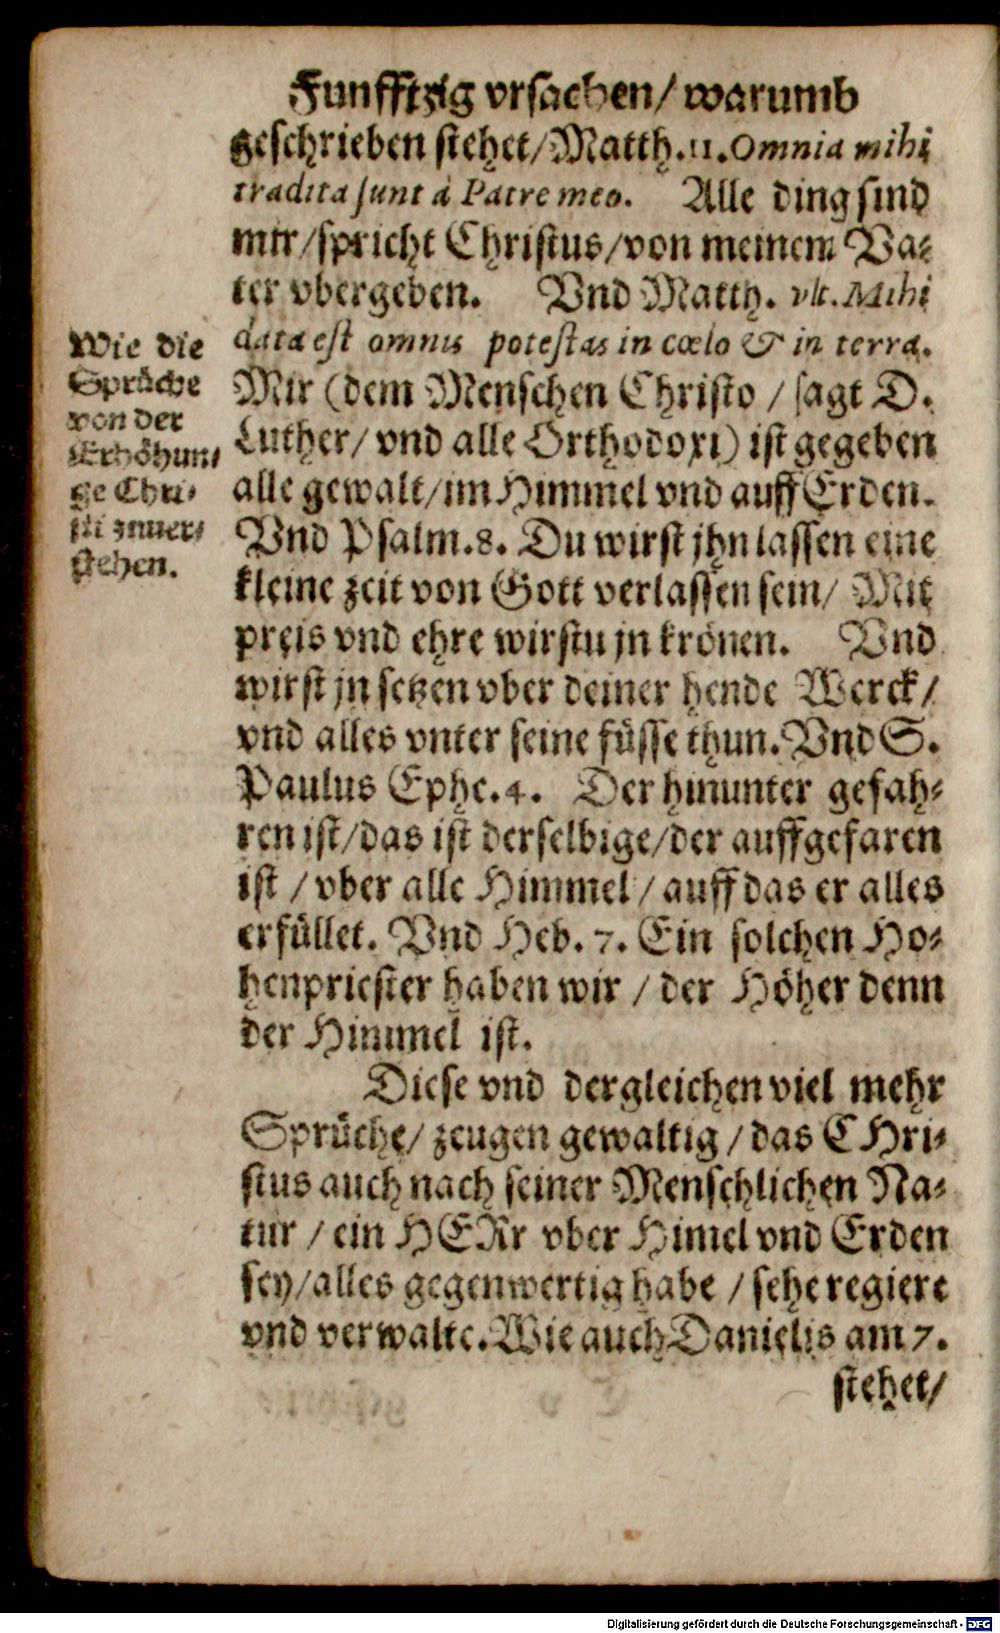 Funfftzig vrsachen/ warumb
geschrieben stehet/Matth.11.Omnia mihi
tradita sunt à Patre meo. Alle ding sind
mir/spricht Christus/von meinem Va⸗
ter vbergeben. Vnd Matth. vlt. Mihi
data est omnis potestas in cœlo & in terra.
Mir (dem Menschen Christo / sagt D.
Luther/ vnd alle Orthodoxi) ist gegeben
alle gewalt/im Himmel vnd auff Erden.
Vnd Psalm.8. Du wirst jhn lassen eine
kleine zeit von Gott verlassen sein/ Mit
preis vnd ehre wirstu jn krönen. Vnd
wirst jn setzen vber deiner hende Werck/
vnd alles vnter seine füsse thun. Vnd S.
Paulus Ephe.4. Der hinunter gefah⸗
ren ist/das ist derselbige/der auffgefaren
ist / vber alle Himmel / auff das er alles
erfüllet. Vnd Heb. 7. Ein solchen Ho⸗
henpriester haben wir / der Höher denn
der Himmel ist.
Wie die
Sprüche
von der
Erhöhun⸗
ge Chri⸗
sti zuuer⸗
stehen.
Diese vnd dergleichen viel mehr
Sprüche/ zeugen gewaltig / das CHri⸗
stus auch nach seiner Menschlichen Na⸗
tur / ein HERr vber Himel vnd Erden
sey/alles gegenwertig habe / sehe regiere
vnd verwalte. Wie auch Danielis am 7.
stehet/
Digitalisierung gefördert durch die Deutsche Forschungsgemeinschaft - DFG